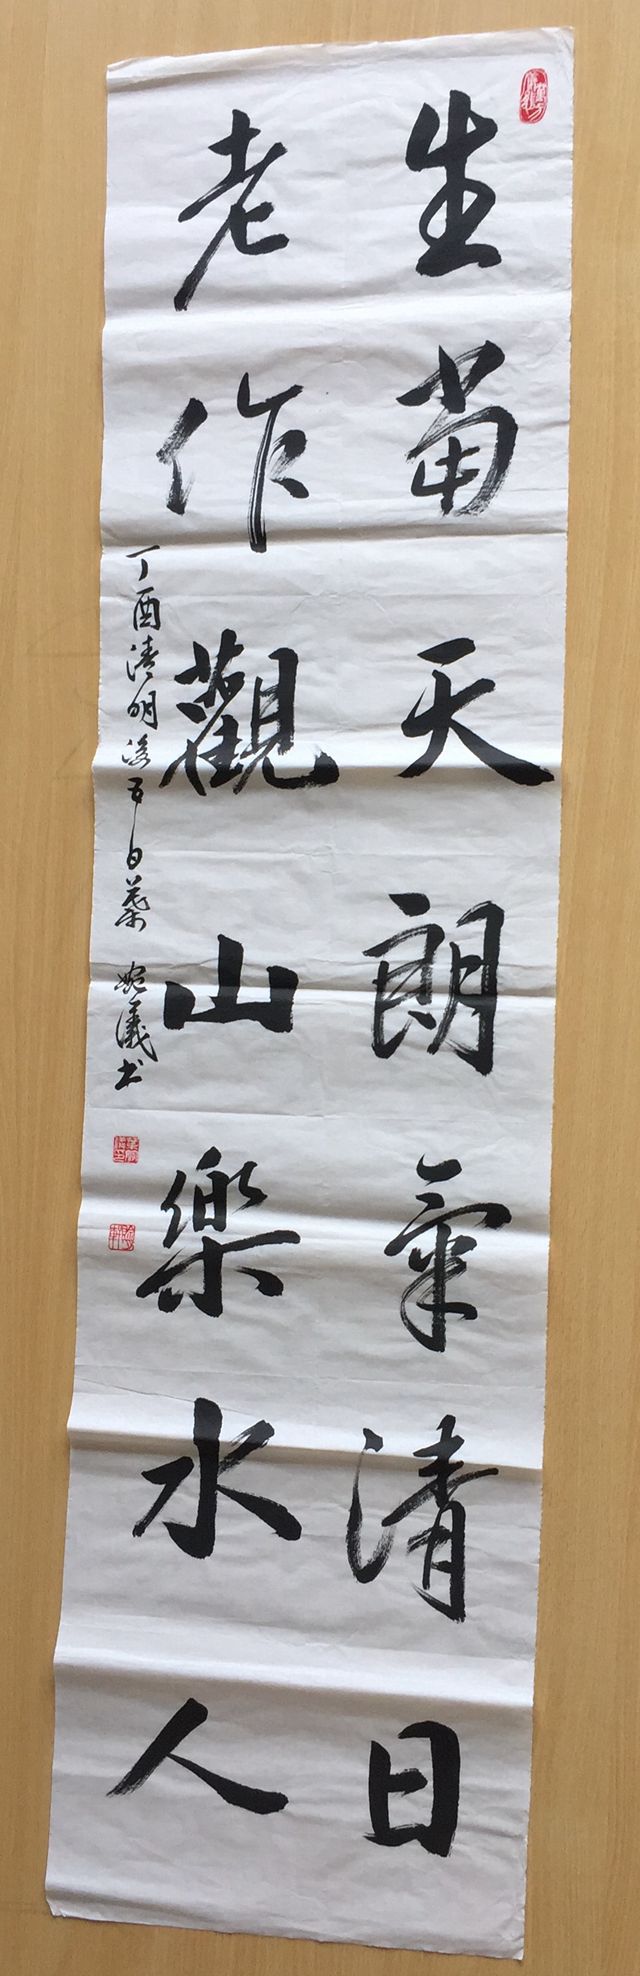 生當天朗氣清日
老作觀山樂水人
丁酉清明後五日葉婉儀書